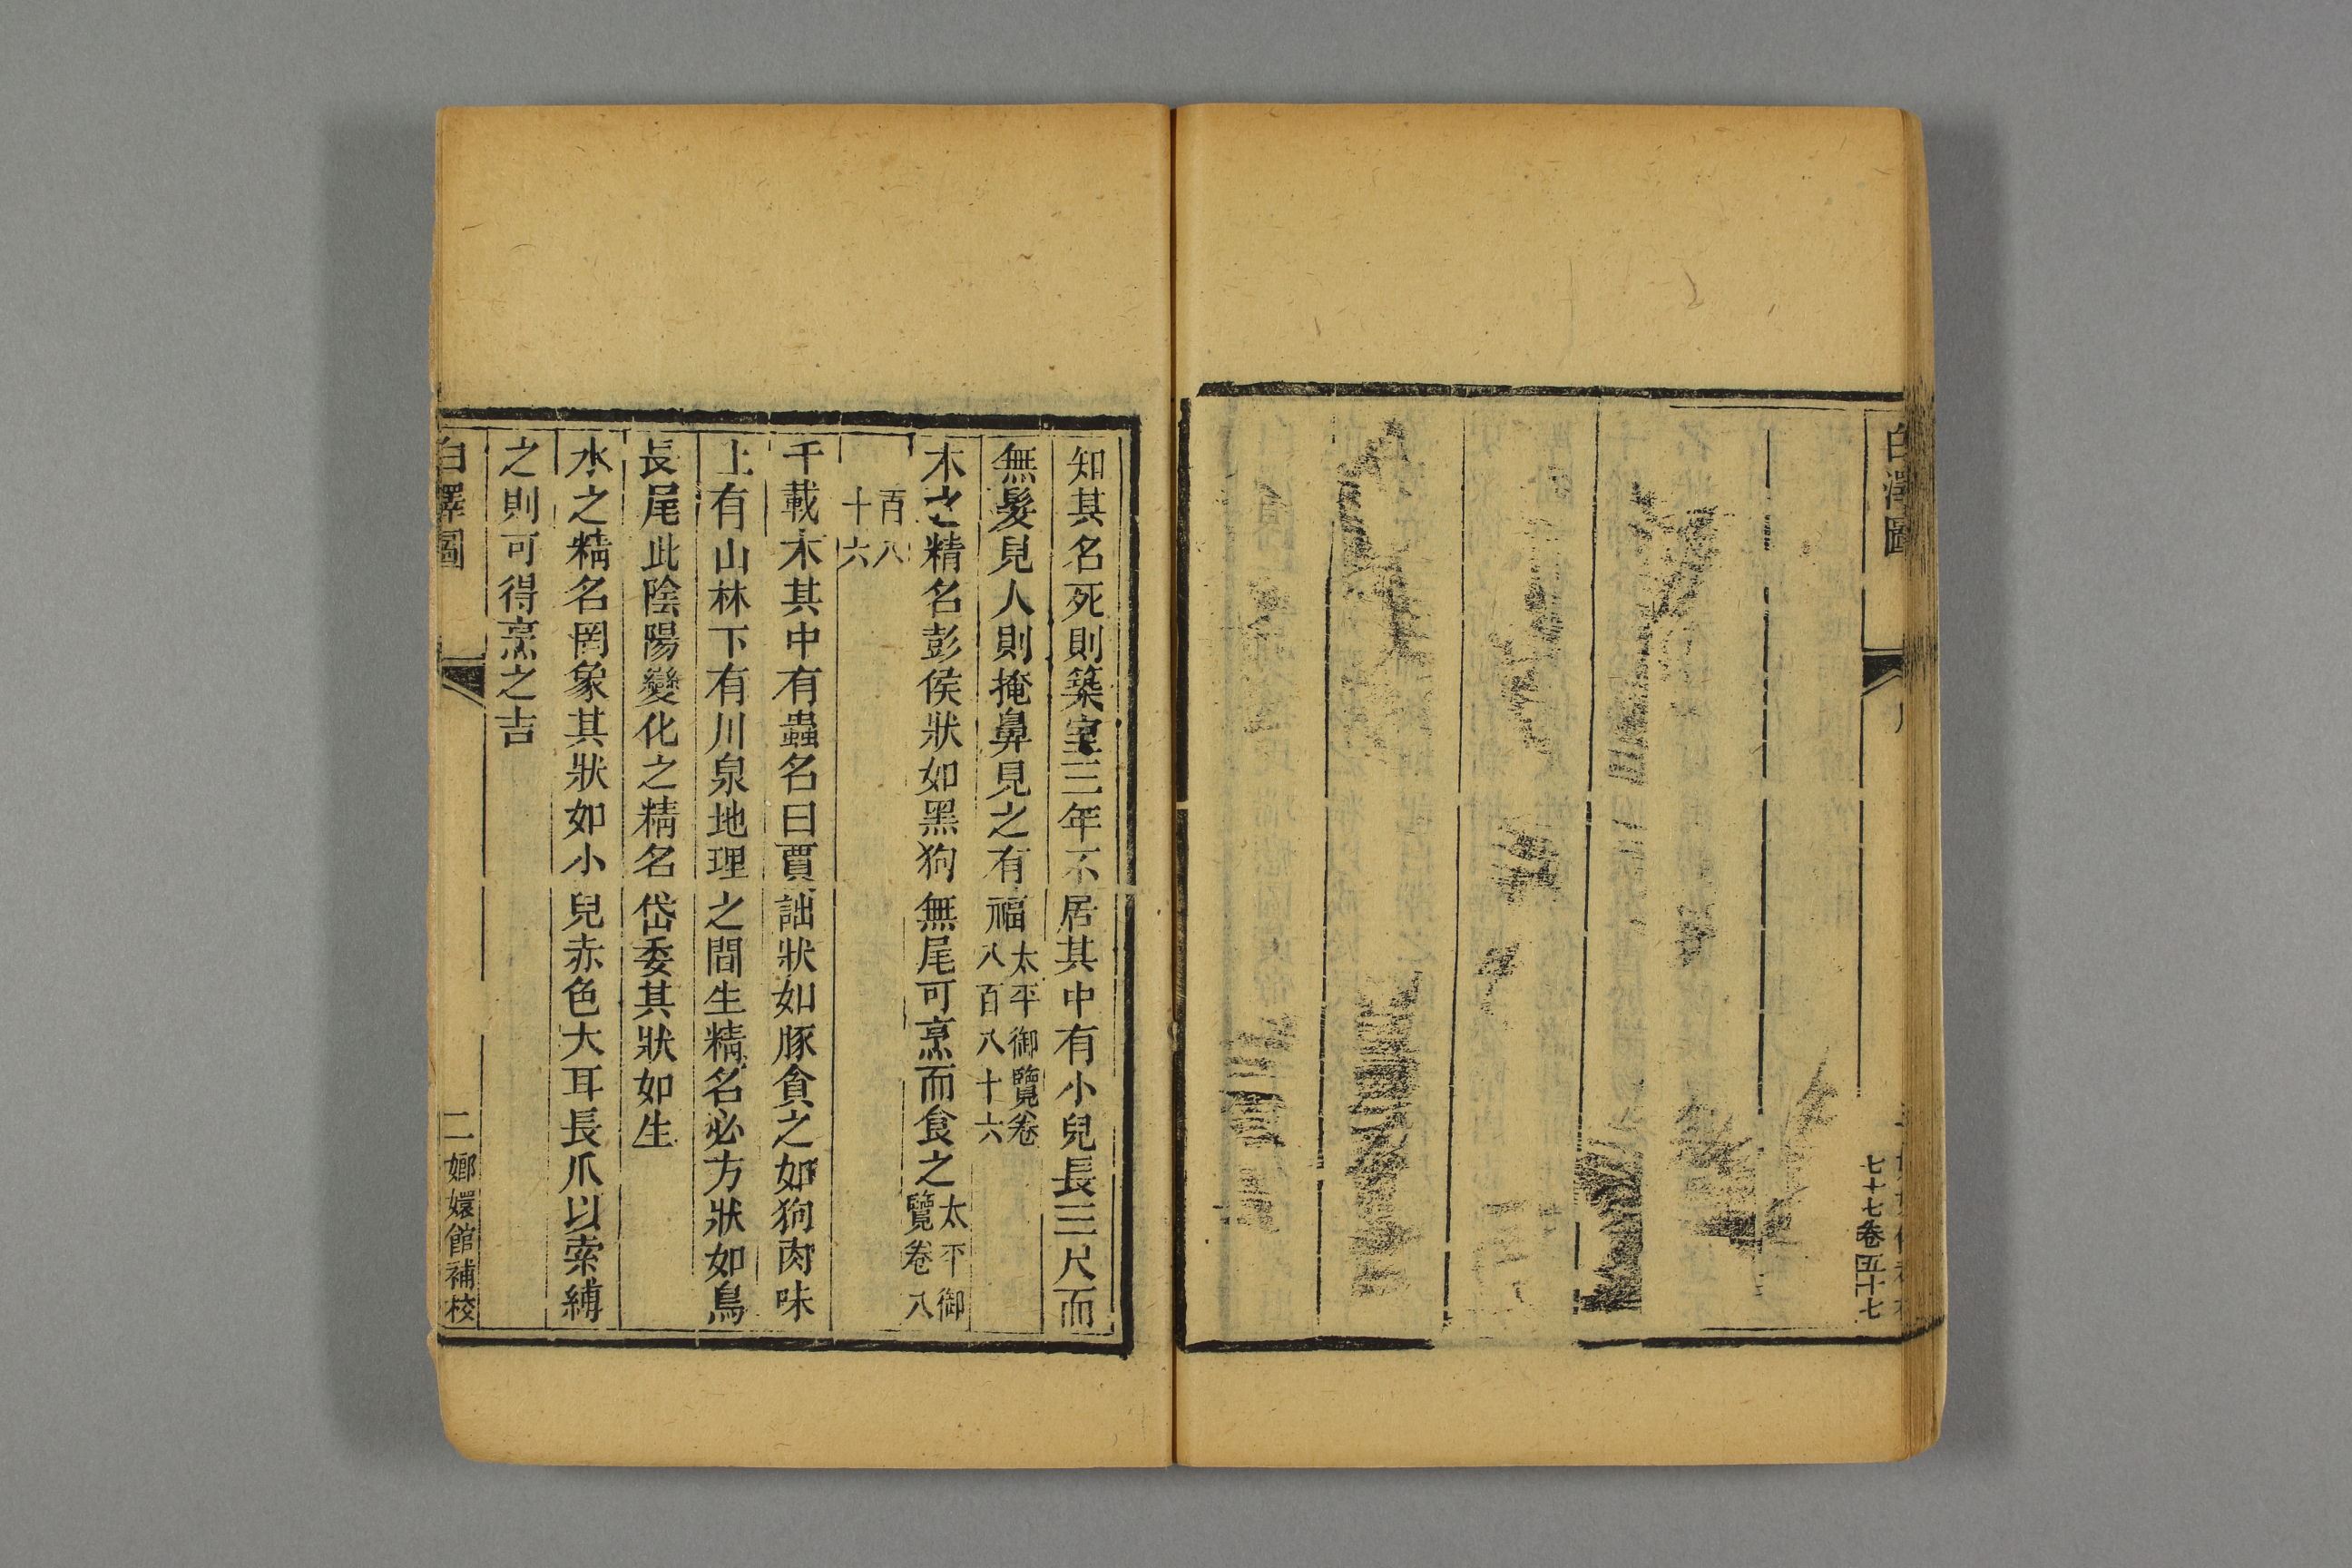 白澤圖
七十七卷五十七
知其名死則築室三年不居其中有小兒長三尺而
無髮見人則掩鼻見之有福太平御覽卷八百八十六
木之精名彭侯狀如黑狗無尾可烹而食之太平御覽卷八
百八十六
千載木其中有蟲名曰賈詘狀如豚食之如狗肉味
上有山林下有川泉地理之間生精名必方狀如鳥
長尾此陰陽變化之精名岱委其狀如生
水之精名罔象其狀如小兒赤色大耳長爪以索縛
之則可得烹之吉
白澤圖
二
嫏嬛館補校